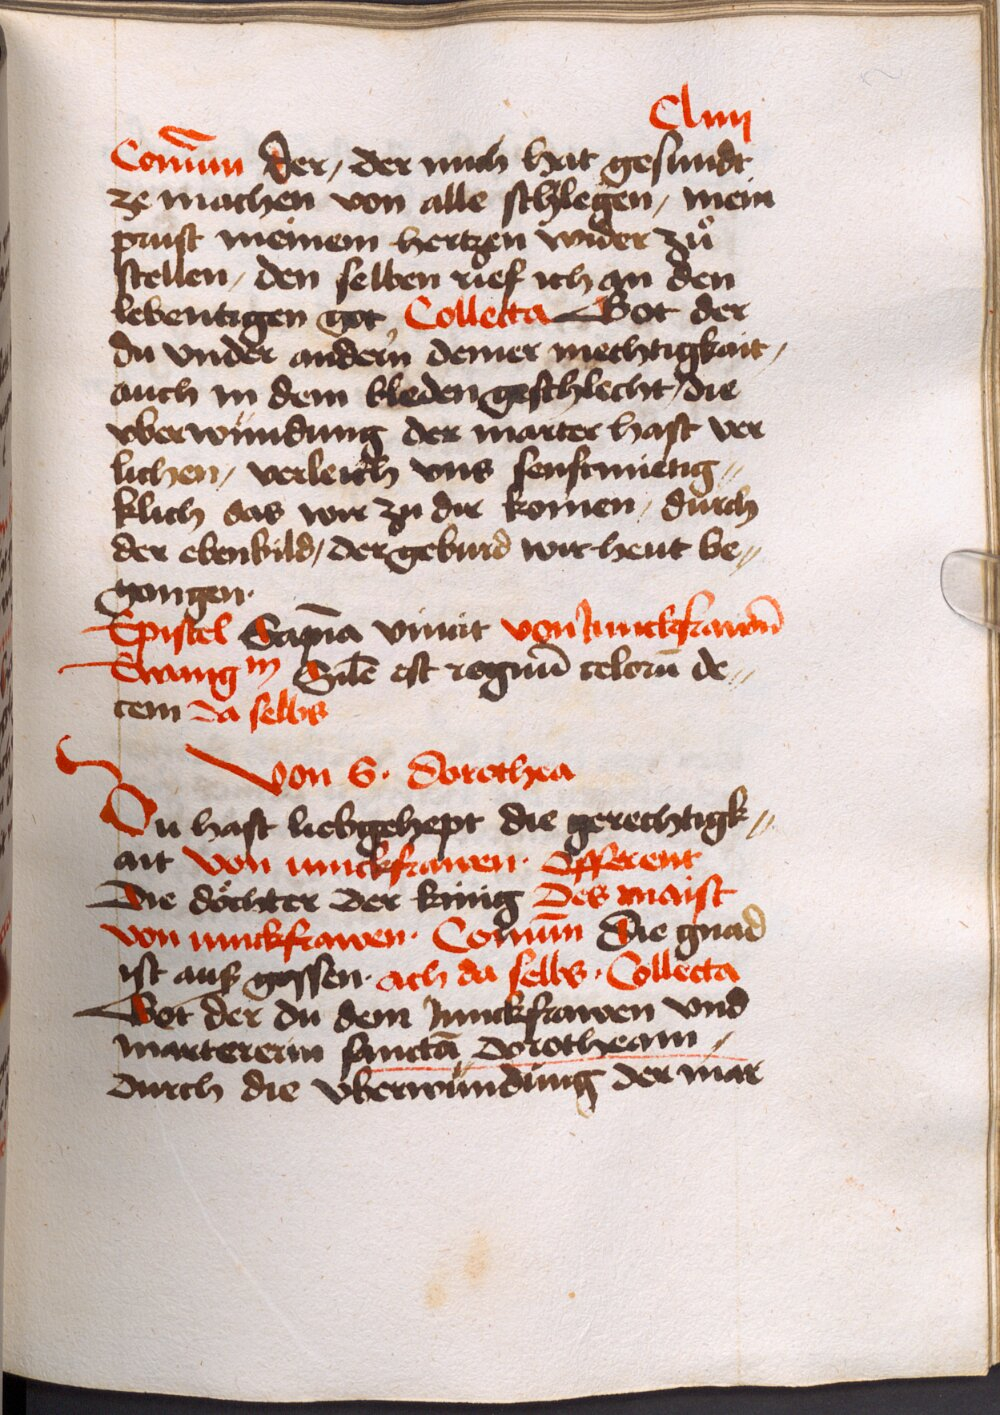 Cliiij
Com̄un Der / der mich hat gesundt
ze machen von alle schlegen / mein
prust meinem hertzen wider zuͦ
stellen / den selben rief ich an den
lebentigen got Collecta Got der
du vnder andern deiner mechtigkait /
auch in dem bleden geschlecht / die
vberwindung der marter hast ver
lichen / verleich vns senftmietig //
klich das wir zu dir komen / durch
der ebenbild / der geburd wir heut be //
gongen ·
Epistel Sapīa vincit von Junckfrawn̄
Ewangm Sil̄e est regnū celorū de //
cem da selbs
Von S · Dorothea
Du hast liebgehept die gerechtigk //
ait von iunckfrawen · Offerent
Die döchter der king Des maist
von iunckfrawen · Com̄un Die gnad
ist aus gossen · ach da selbs · Collecta
Got der du dem Junckfrawen vnd
martererin sanctā Dorotheam /
durch die vberwindung der mar